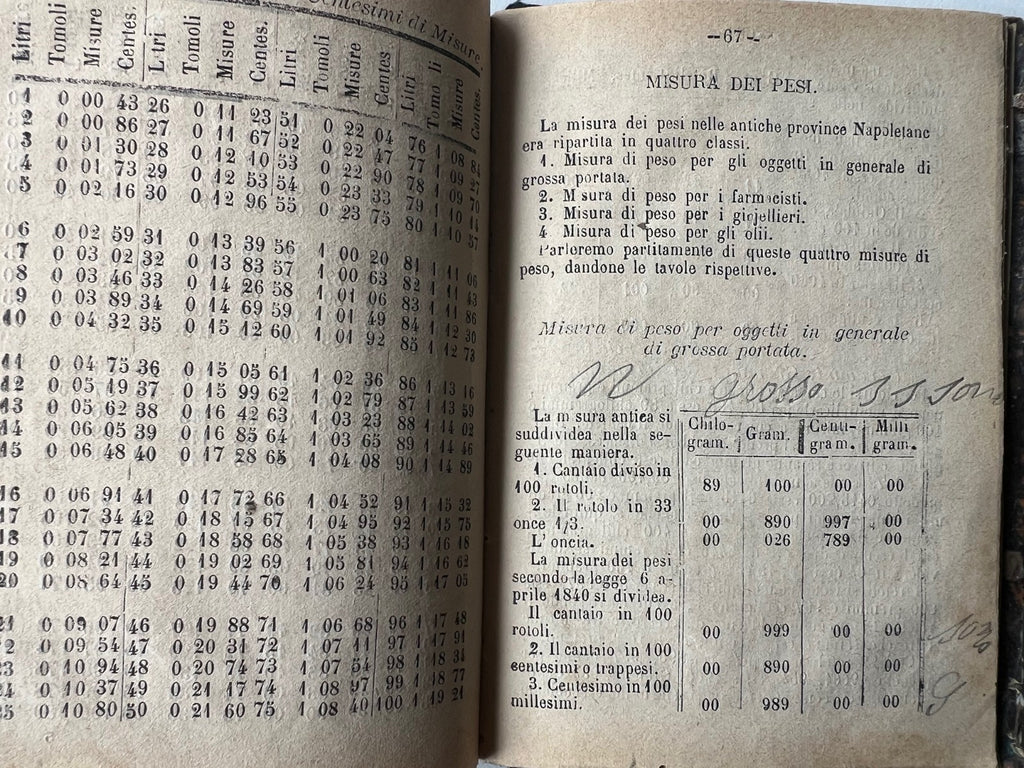 entesimi di Misure.
Litri Tomoli Misure Centes. Litri Tomoli Misure Centes. Litri Tomoli Misure Centes Litri Tomoli Misure Centes.
1 0 00 43 26 0 11 23 51 0 22 04 76 1 08 84
2 0 00 86 27 0 11 67 52 0 22 47 77 1 09 27
3 0 01 30 28 0 12 10 53 0 22 90 78 1 09 70
4 0 01 73 29 0 12 53 54 0 23 33 79 1 10 14
5 0 02 16 30 0 12 96 55 0 23 75 80 1 10 57
6 0 02 59 31 0 13 39 56 1 00 20 81 1 11 06
7 0 03 02 32 0 13 83 57 1 00 63 82 1 11 43
8 0 03 46 33 0 14 26 58 1 01 06 83 1 11 86
9 0 03 89 34 0 14 69 59 1 01 49 84 1 12 30
10 0 04 32 35 0 15 12 60 1 01 92 85 1 12 73
11 0 04 75 36 0 15 05 61 1 02 36 86 1 13 16
12 0 05 19 37 0 15 99 62 1 02 79 87 1 13 59
13 0 05 62 38 0 16 42 63 1 03 23 88 1 14 02
14 0 06 05 39 0 16 85 64 1 03 65 89 1 14 46
15 0 06 48 40 0 17 28 65 1 04 08 90 1 14 89
16 0 06 91 41 0 17 72 66 1 04 52 91 1 15 32
17 0 07 34 42 0 18 15 67 1 04 95 92 1 15 75
18 0 07 77 43 0 18 58 68 1 05 38 93 1 16 18
19 0 08 21 44 0 19 02 69 1 05 81 94 1 16 62
20 0 08 64 45 0 19 44 70 1 06 24 95 1 17 05
21 0 09 07 46 0 19 88 71 1 06 68 96 1 17 48
2 0 09 54 47 0 20 31 72 1 07 11 97 1 17 91
23 0 10 94 48 0 20 74 73 1 07 54 98 1 18 34
24 0 10 37 49 0 21 17 74 1 08 97 99 1 18 77
25 0 10 80 50 0 21 60 75 1 08 40 100 1 19 21
--67--
MISURA DEI PESI.
La misura dei pesi nelle antiche province Napoletane
era ripartita in quattro classi.
1. Misura di peso per gli oggetti in generale di
grossa portata.
2. M sura di peso per i farmacisti.
3. Misura di peso per i giojellieri.
4 Misura di peso per gli olii.
Parleremo partitamente di queste quattro misure di
peso, dandone le tavole rispettive.
Misura di peso per oggetti in generale
di grossa portata.
N grosso
La m sura antica si
suddividea nella se-
guente maniera.
Chilo-gram. Gram. Centi-gram. Milli gram.
1. Cantaio diviso in
100 rotoli. 89 100 00 00
2. Il rotolo in 33
once 1/3. 00 890 997 00
L' oncia. 00 026 789 00
La misura dei pesi
secondo la legge 6 a-
prile 1840 si dividea.
Il cantaio in 100
rotoli. 00 999 00 00
2. Il cantaio in 100
centesimi o trappesi. 00 890 00 00
3. Centesimo in 100
millesimi. 00 989 00 00